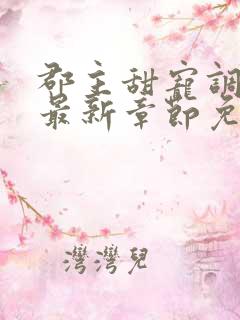 郡主甜寵調
最新章節免
灣灣兒